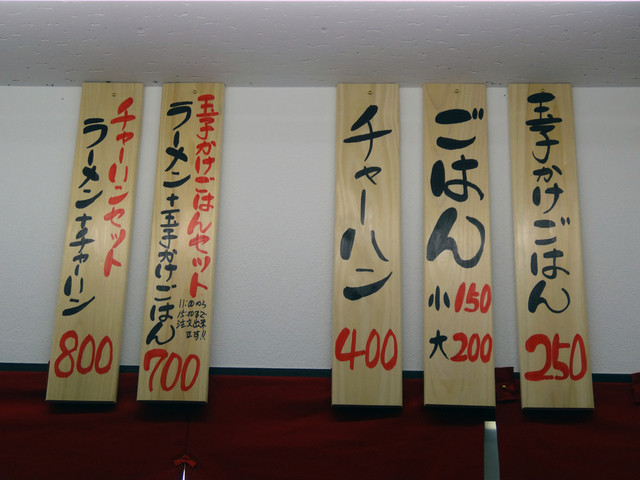 玉子かけごはん
250
ごはん
小150
大200
チャーハン
400
玉子かけごはんセット
ラーメン+玉子かけごはん
11:00から
15:00まで
注文出来ます!!
700
チャーハンセット
ラーメン+チャーハン
800